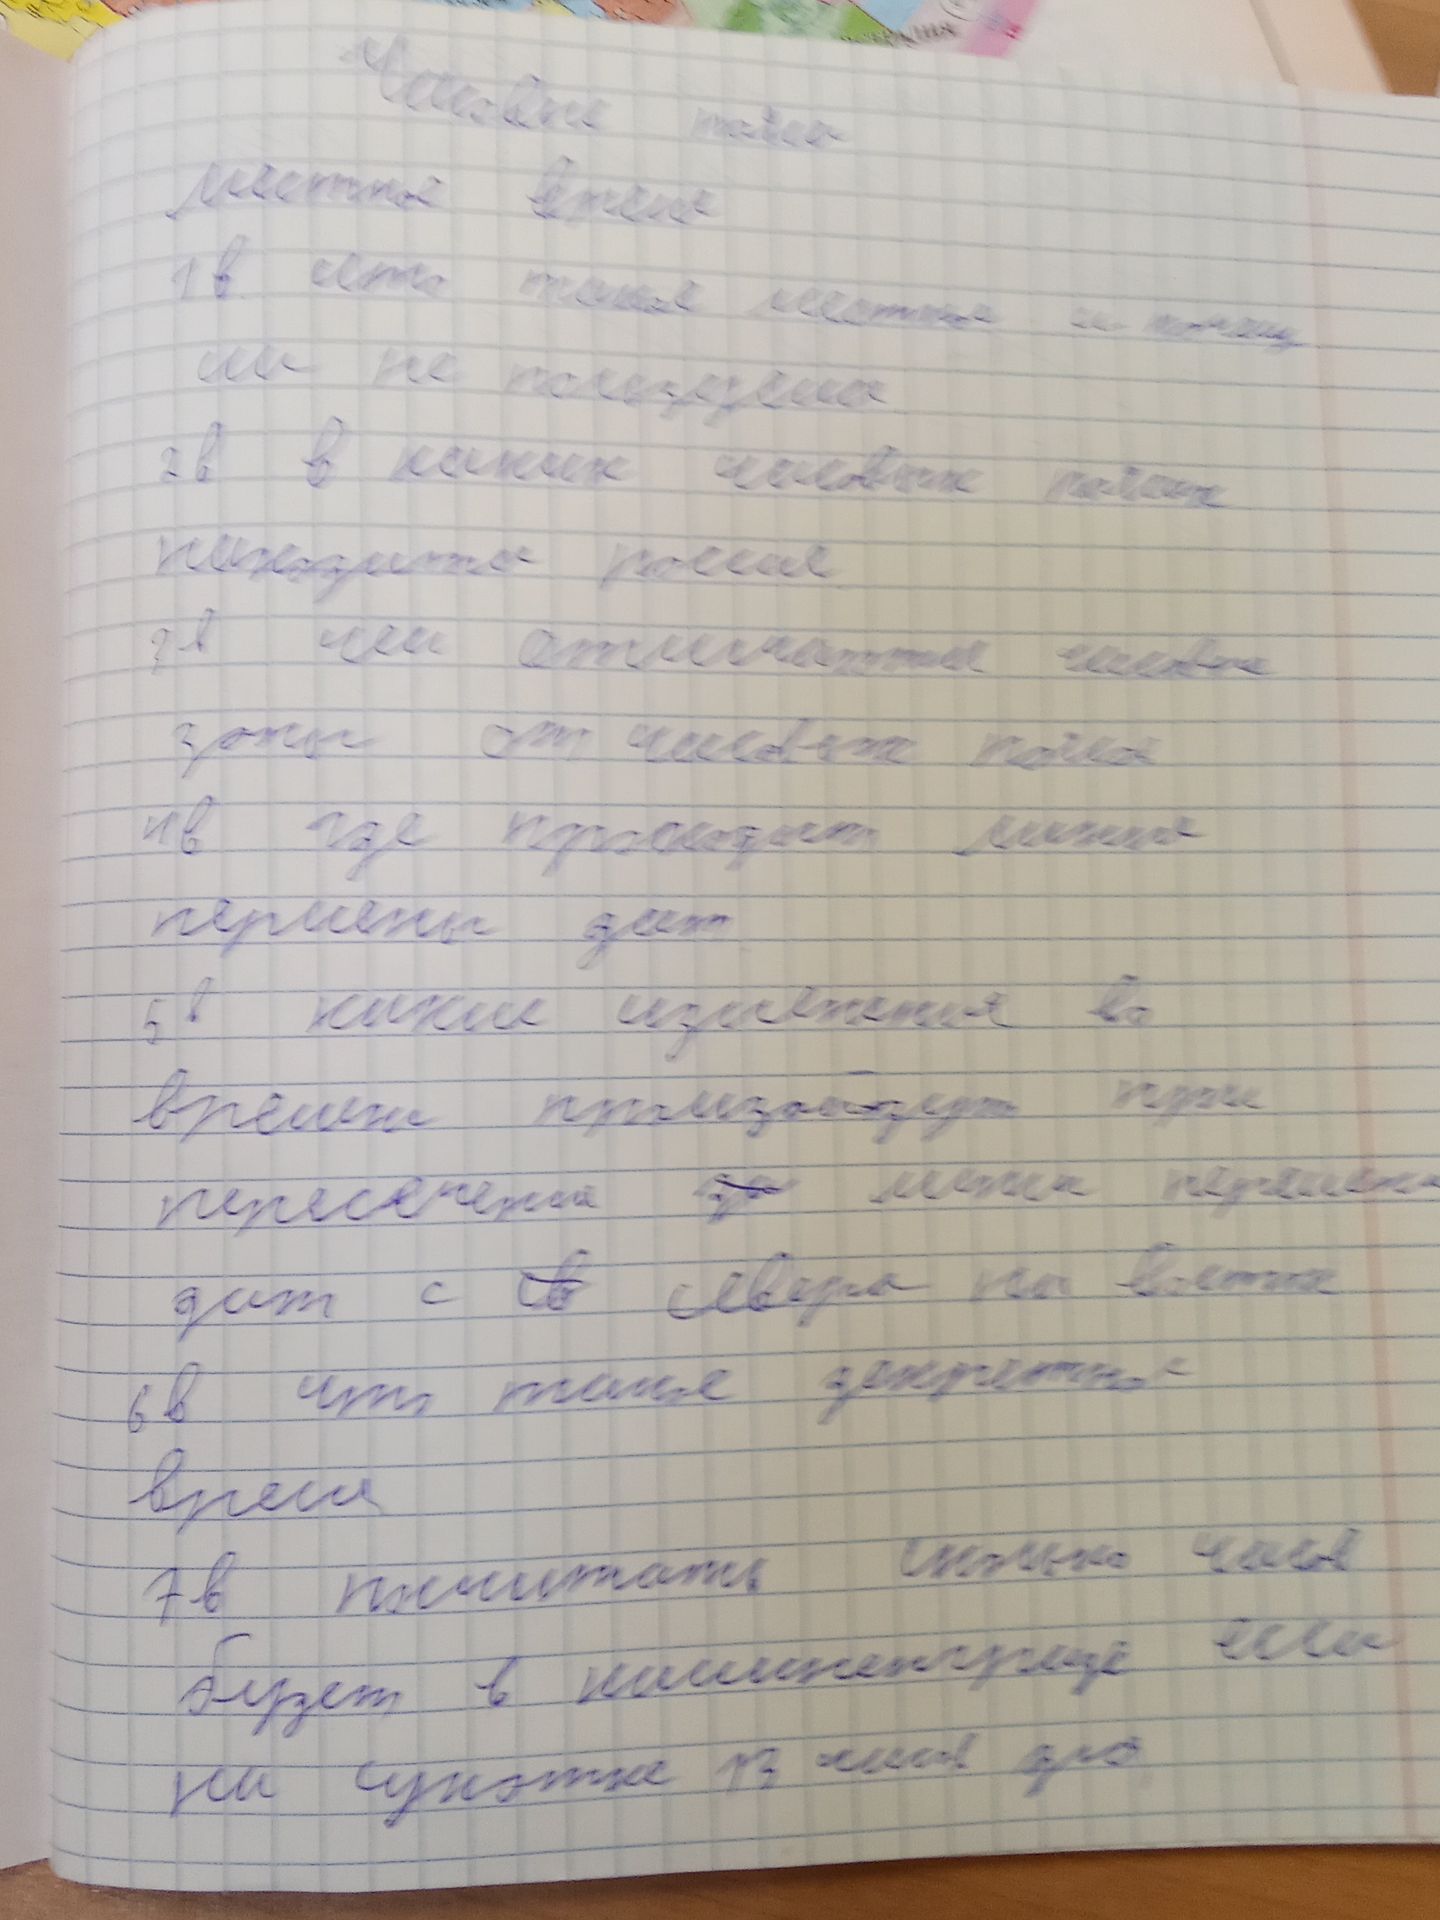 Часовые пояса
местное время
1в что такое местное и почему
мы не пользуемся
2в в каких часовых поясах
находится россия
3в чем отличаются часовые
зоны от часовых поясов
4в где проходит линия
перемены дат
5в какие изменения во
времени произойдут при
пересечении линии перемены
дат с севера на восток
6в что такое декретное
время
7в посчитать сколько часов
будет в калининграде если
на чукотке 13 часов дня